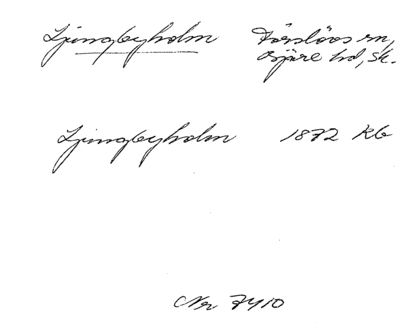 Ljungbyholm Förslövs sn,
Bjäre hd, Sk.
Ljungbyholm 1872 Kb
Nr 7410